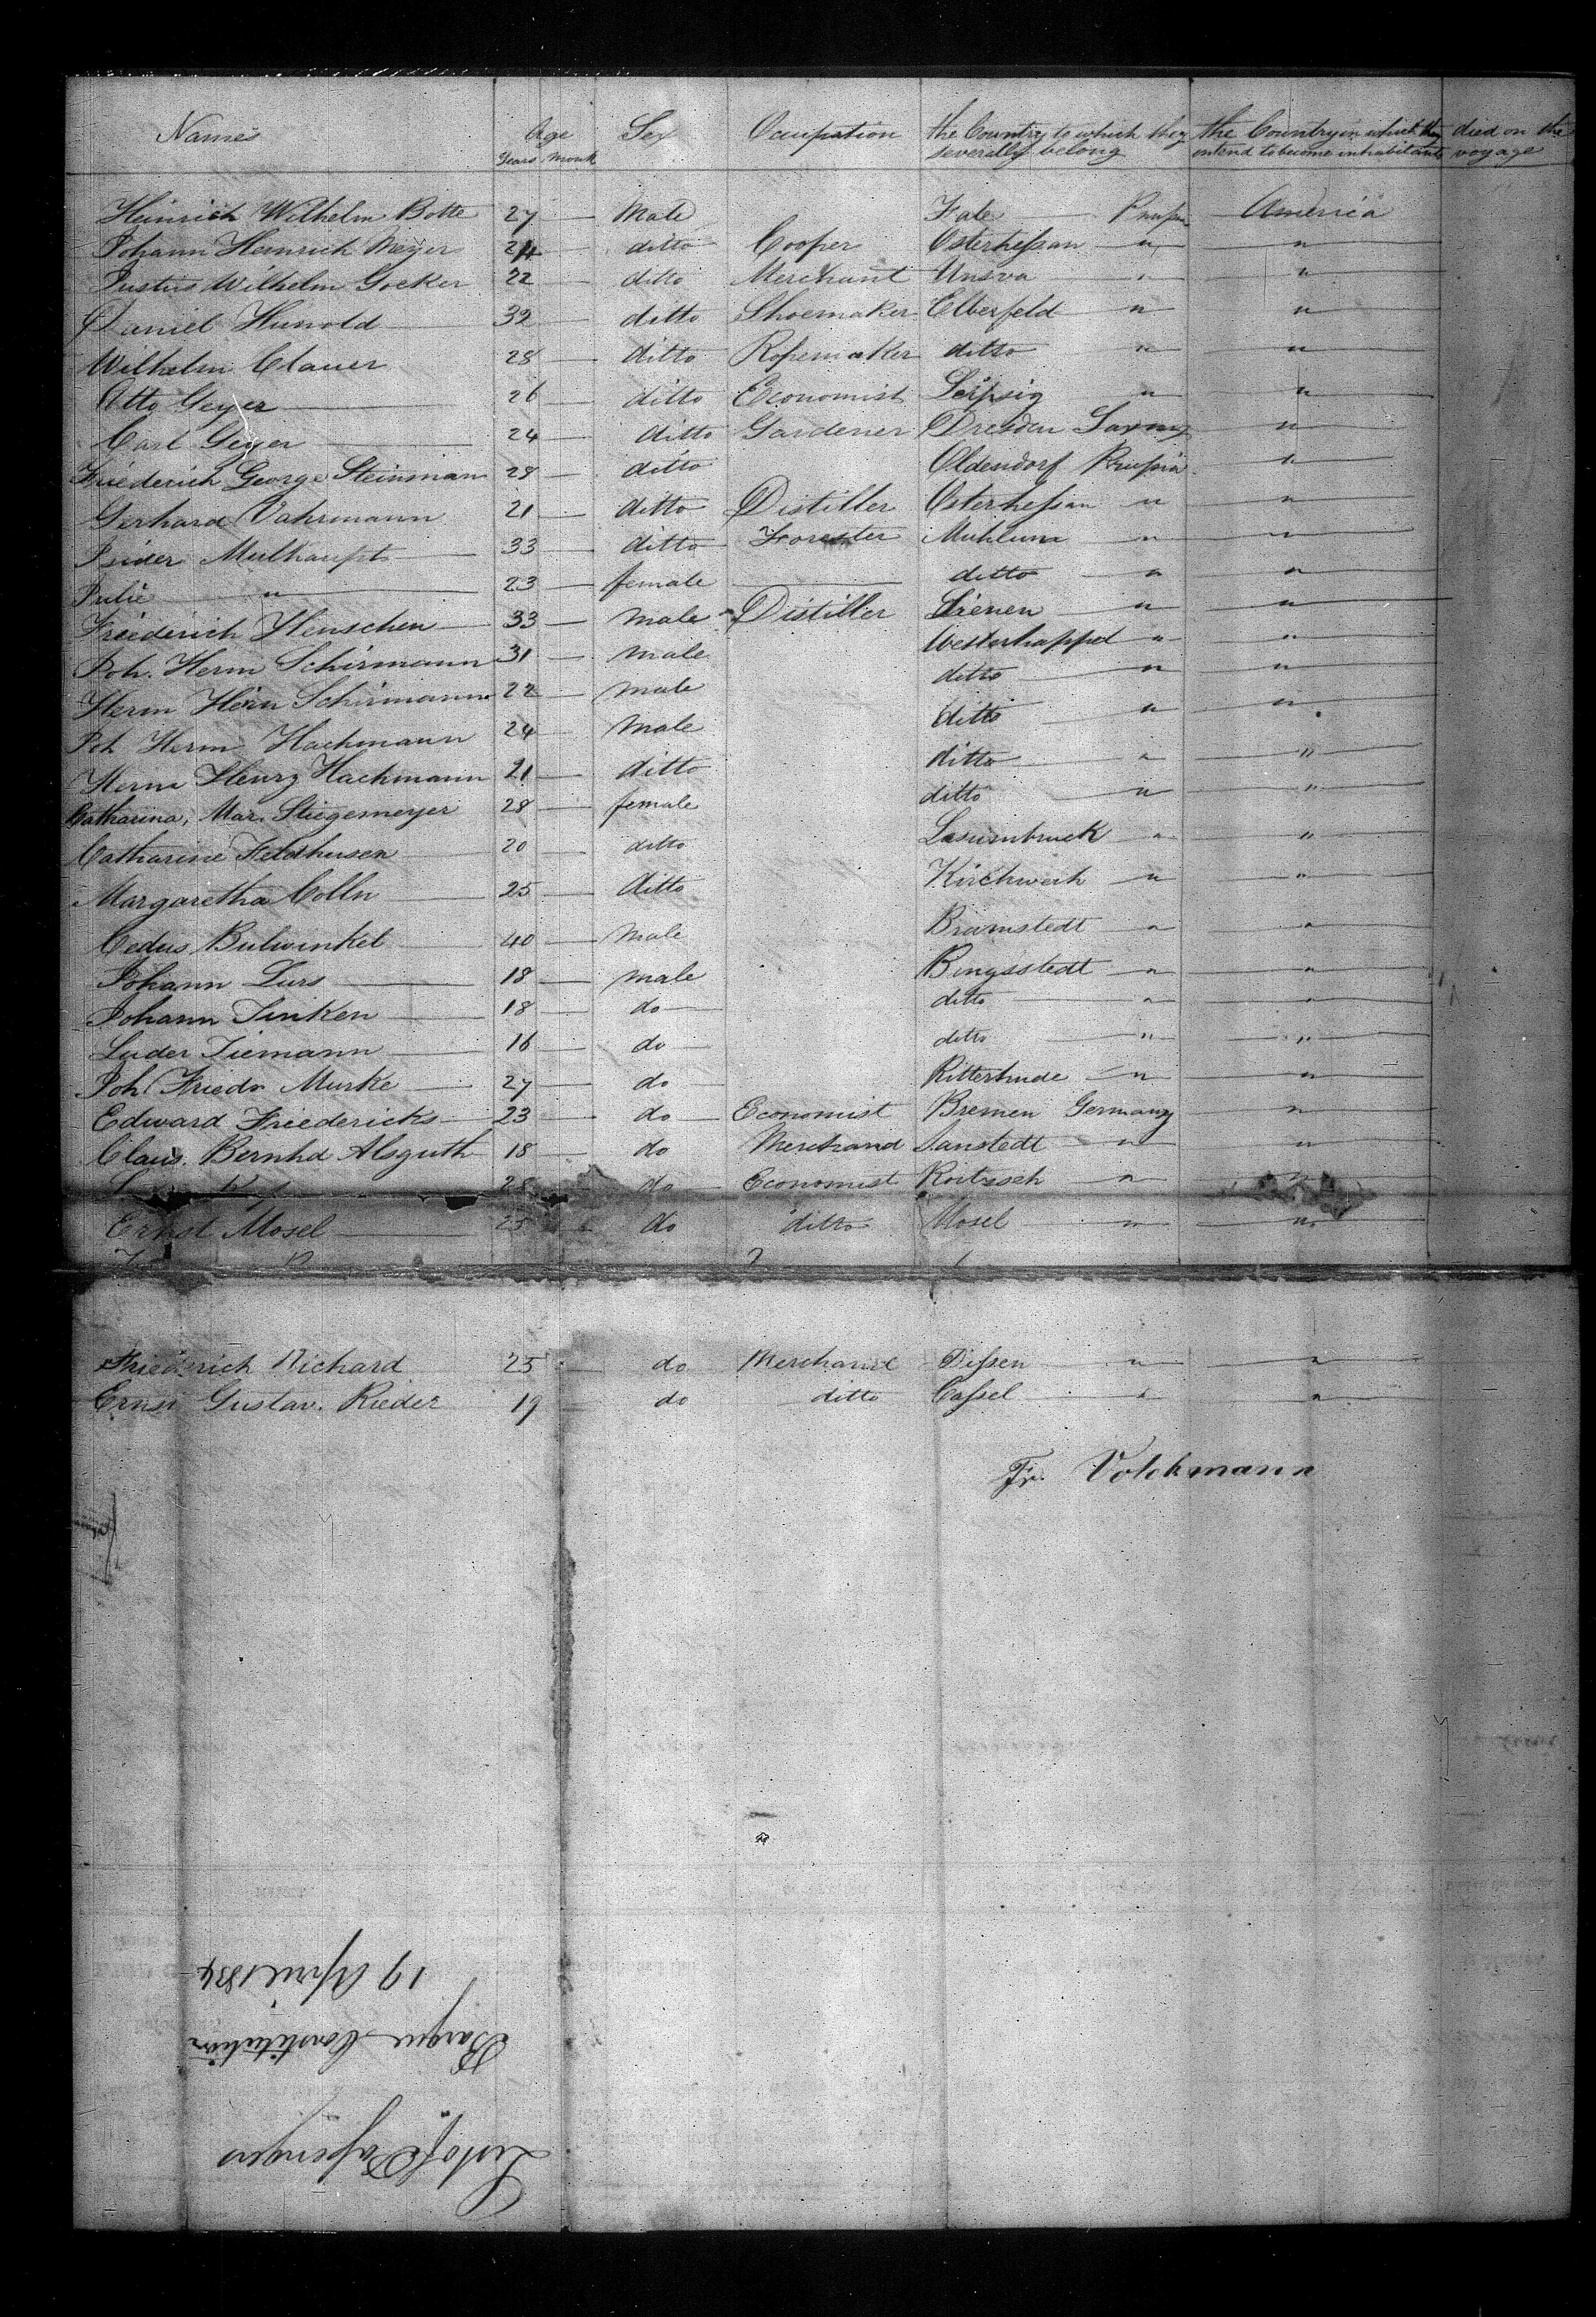 Names Age Sex Occupation the Country to which they the Country in which they died on the
Years Month severally belong intend to become inhabitants voyage
Heinrich Wilhelm Botte 27 — Male Prussia America
Johann Heinrich Meyer 24 — ditto Cooper Osterhessan " "
Justus Wilhelm Gocker 22 — ditto Merchant " "
Daniel Hunold 32 — ditto Shoemaker Elberfeld " "
Wilhelm Clauer 28 — ditto Ropemaker ditto " "
Otto Geyer 26 ditto Economist Leipsig " "
Carl Geyer 24 — ditto Gardener Dresden Saxony "
Friederich George Steinman 28 — ditto Oldendorf Prussia "
Gerhard Vahrmann 21 — ditto Distiller Osterhessan " "
Isider Mulhaupt 33 — ditto Forester " "
Julie " 23 — female — ditto " "
Friederich Henschen 33 — male Distiller Lienen " "
Joh. Herm Schirmann 31 — male Westerkappel " "
Herm Hein Schirmann 22 — male ditto " "
Joh Herm Hachmann 24 — male ditto " "
Herm Henry Hachmann 21 — ditto ditto " "
Catharina, Mar. Stiegemeyer 28 — female ditto " "
Catharine Feldhusen 20 — ditto " "
Margaretha Colln 25 — ditto Kirchweih " "
Cedus Bulwinkel 40 — Male Bramstedt " "
Johann Lurs 18 — male " "
Johann Tinken 18 — do ditto " "
Luder Tiemann 16 — do ditto " "
Joh Friedr Murke 27 — do Ritterhude " "
Edward Friedericks 23 — do Economist Bremen Germany "
Claus Bernhd Alsguth 18 — do Merchand Sanstedt " "
28 do Economist Roitzsch " "
Ernst Mosel 25 do ditto Mosel " "
Friederich Richard 25 — do Merchand Dissen " "
Ernst Gustav. Rieder 19 do ditto Cassel " "
Fr. Volckmann
List of Passengers
Barque Constitution
19 April 1834